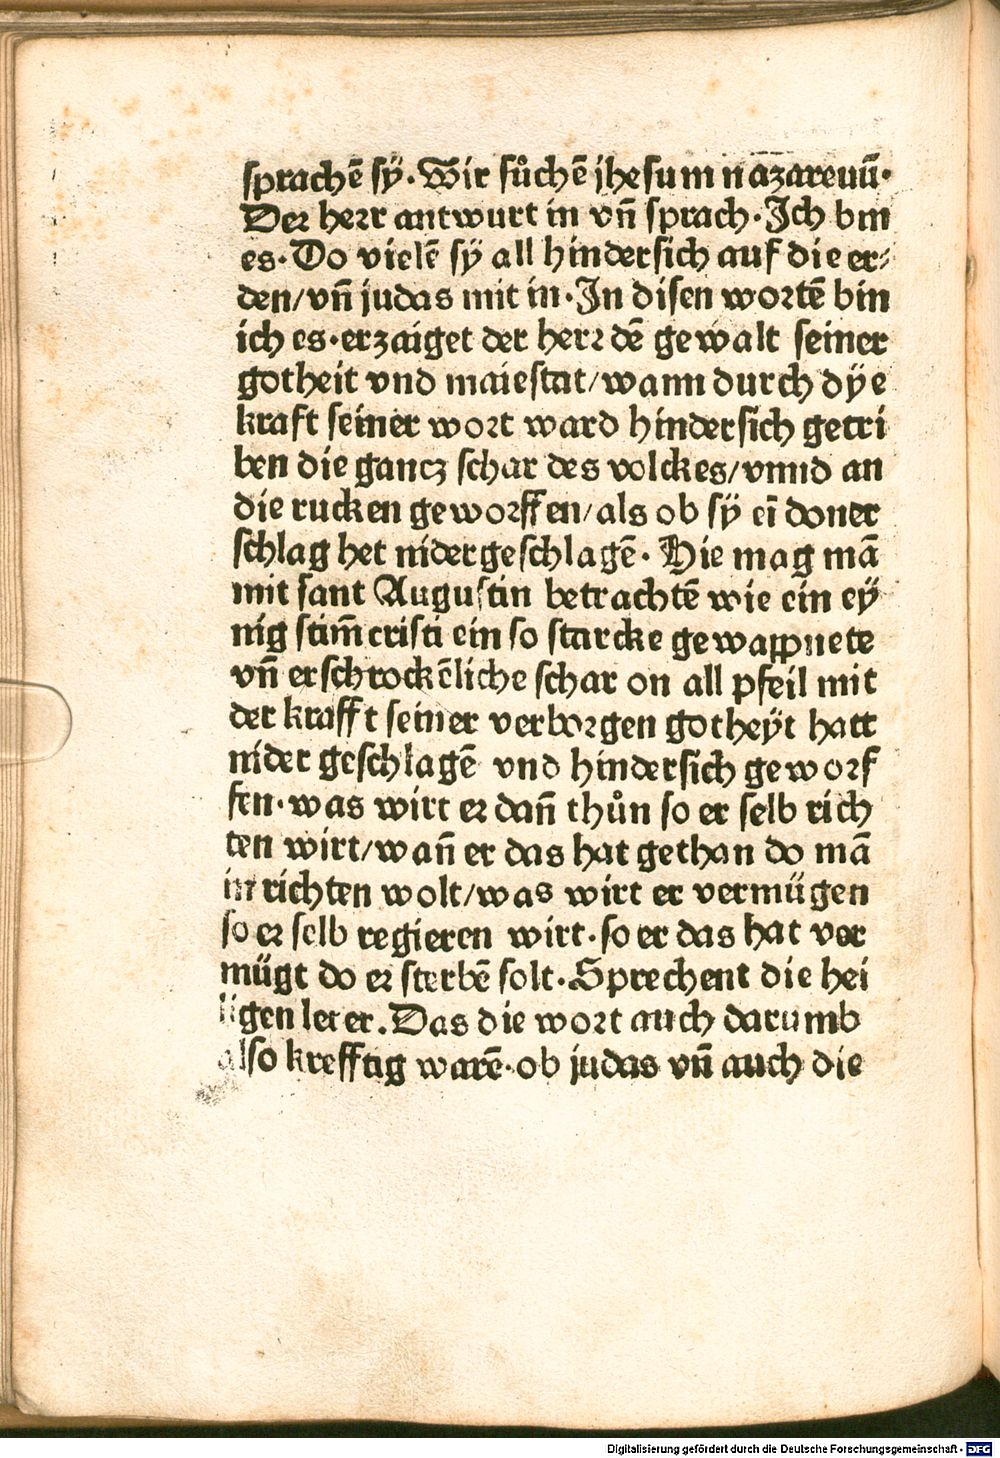 sprachē sÿ. Wir sůchē jhesum nazarenū.
Der herr antwurt in vn̄ sprach. Ich bin
es. Do vielē sÿ all hindersich auf die er⸗
den/vn̄ judas mit in. In disen wortē bin
ich es. erzaiget der herr dē gewalt seiner
gotheit vnd maiestat/wann durch dÿe
kraft seiner wort ward hindersich getri
ben die gancz schar des volckes/vnnd an
die rucken geworffen/als ob sÿ eī doner
schlag het nidergeschlagē. Hie mag mā
mit sant Augustin betrachtē wie ein eÿ
nig stim̄ cristi ein so starcke gewappnete
vn̄ erschrockēliche schar on all pfeil mit
der krafft seiner verborgen gotheÿt hatt
nider geschlagē vnd hindersich geworf
fen. was wirt er dan̄ thůn so er selb rich
ten wirt/wan̄ er das hat gethan do mā
in richten wolt/was wirt er vermügen
so er selb regieren wirt. so er das hat ver
mügt do er sterbē solt. Sprechent die hei
ligen lerer. Das die wort auch darumb
also krefftig warē. ob judas vn̄ auch die
Digitalisierung gefördert durch die Deutsche Forschungsgemeinschaft - DFG